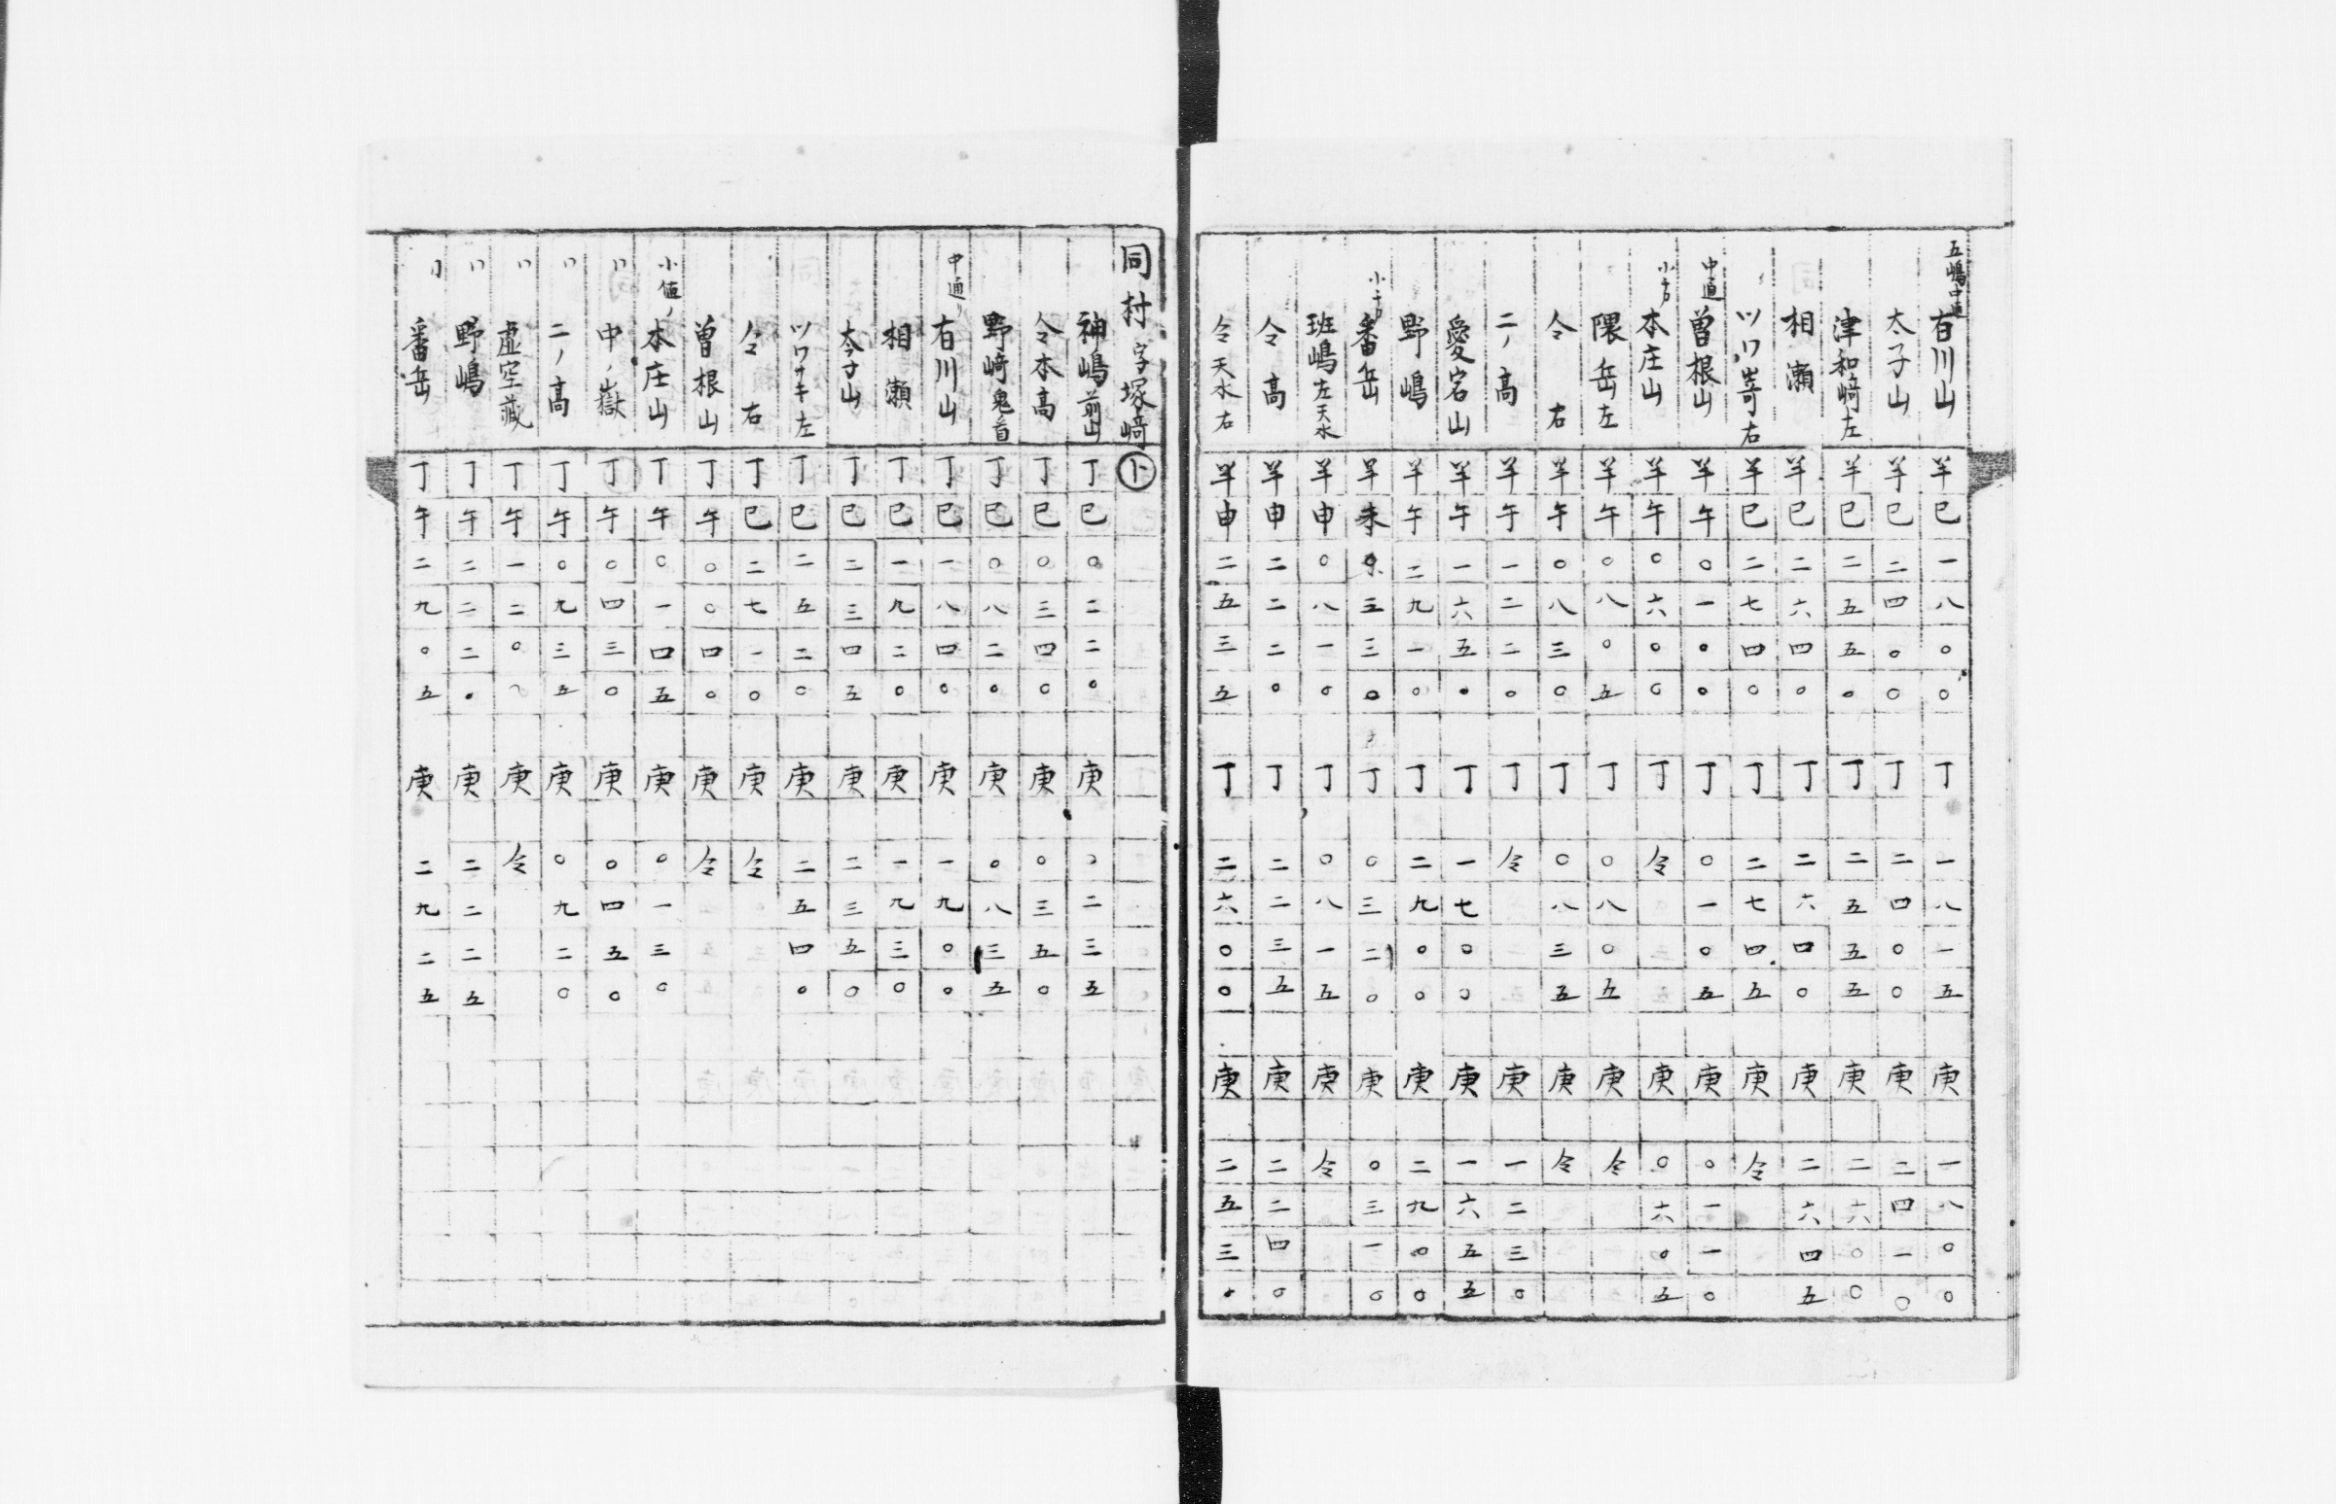 五嶋中道 有川山 羊巳一八〇〇 丁 一八一五 庚 一八〇〇
太子山 羊巳二四〇〇 丁 二四〇〇 庚 二四一〇
津和﨑左 羊巳二五五〇 丁 二五五五 庚 二六〇〇
相瀬 羊巳二六四〇 丁 二六四〇 庚 二六四五
ツワ嵜右 羊巳二七四〇 丁 二七四五 庚 仝
中通 曽根山 羊午〇一〇〇 丁 〇一〇五 庚 〇一一〇
本庄山 羊午〇六〇〇 丁 仝 庚 〇六〇五
隈岳左 羊午〇八〇五 丁 〇八〇五 庚 仝
仝右 羊午〇八三〇 丁 〇八三五 庚 仝
二ノ高 羊午一二二〇 丁 仝 庚 一二三〇
愛宕山 羊午一六五〇 丁 一七〇〇 庚 一六五五
野嶋 羊午二九一〇 丁 二九〇〇 庚 二九〇〇
番岳 羊未〇三三〇 丁 〇三二〇 庚 〇三一〇
班嶋左天水 羊申〇八一〇 丁 〇八一五 庚 仝
仝高 羊申二二二〇 丁 二二三五 庚 二二四〇
仝天水右 羊申二五三五 丁 二六〇〇 庚 二五三〇
同村字塚﨑 ㊦
神嶋前山 丁巳〇二二〇 庚 〇二三五
仝本高 丁巳〇三四〇 庚 〇三五〇
野﨑鬼首 丁巳〇八二〇 庚 〇八三五
中通リ 有川山 丁巳一八四〇 庚 一九〇〇
相瀬 丁巳一九二〇 庚 一九三〇
太子山 丁巳二三四五 庚 二三五〇
ツワサキ左 丁巳二五二〇 庚 二五四〇
仝右 丁巳二七一〇 庚 仝
曽根山 丁午〇〇四〇 庚 仝
小値ノ 本庄山 丁午〇一四五 庚 〇一三〇
〃 中ノ嶽 丁午〇四三〇 庚 〇四五〇
〃 二ノ高 丁午〇九三五 庚 〇九二〇
〃 虚空蔵 丁午一二〇〇 庚 仝
〃 野嶋 丁午二二二〇 庚 二二二五
〃 番岳 丁午二九〇五 庚 二九二五